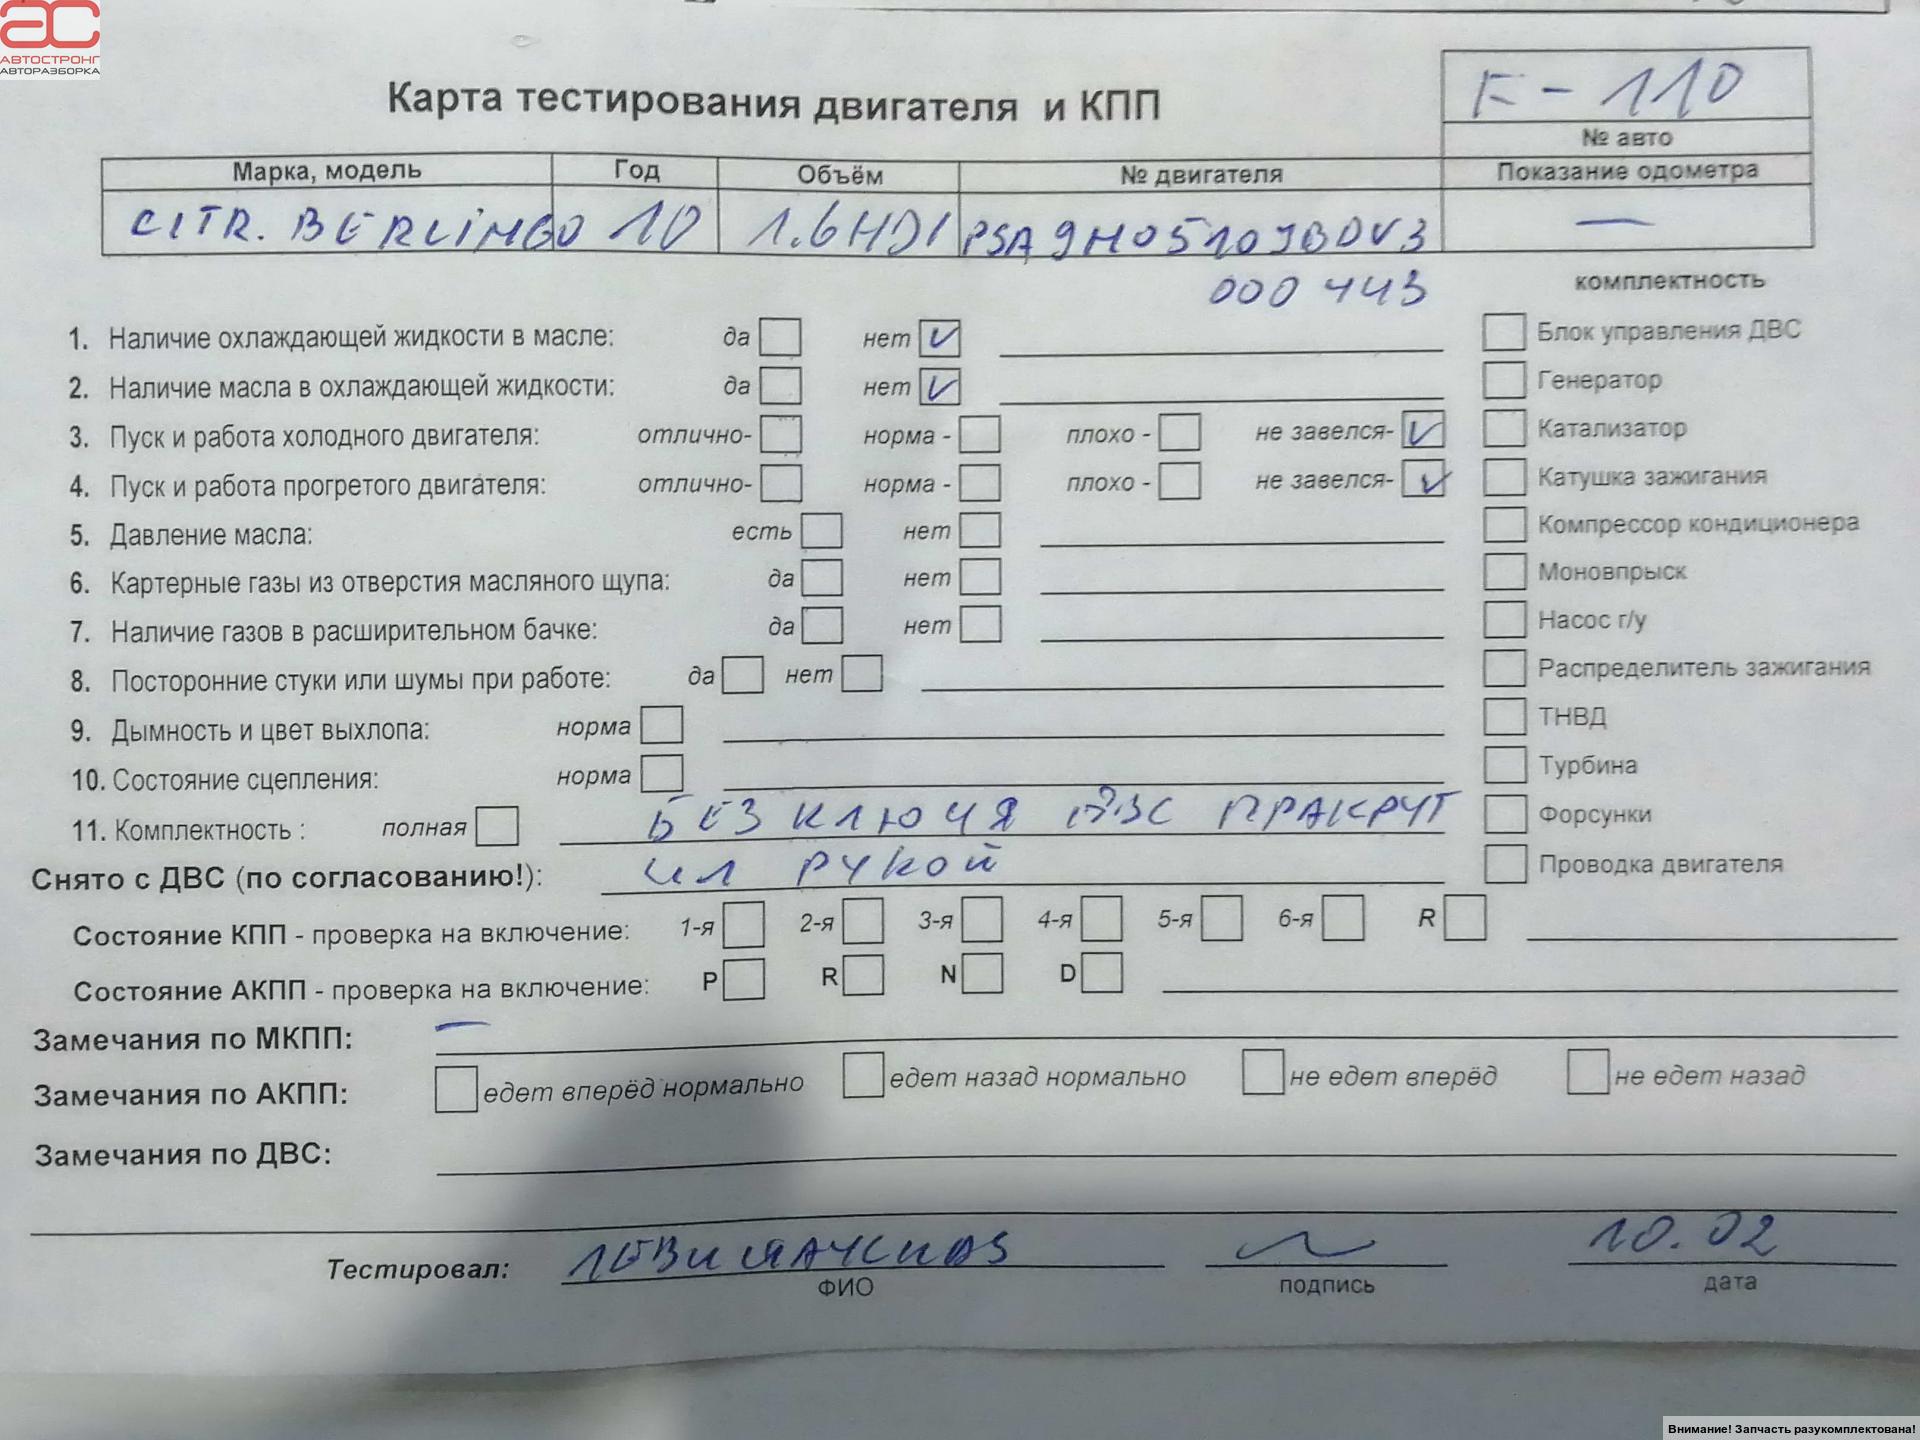 АВТОСТРОНГ
АВТОРАЗБОРКА
Карта тестирования двигателя и КПП
F-110
№ авто
Марка, модель Год Объём № двигателя Показание одометра
CITR. BERLINGO 10 1.6HDI PSA9H05109BDV3 —
000443
комплектность
1. Наличие охлаждающей жидкости в масле: да нет ✓ Блок управления ДВС
2. Наличие масла в охлаждающей жидкости: да нет ✓ Генератор
3. Пуск и работа холодного двигателя: отлично- норма - плохо - не завелся- ✓ Катализатор
4. Пуск и работа прогретого двигателя: отлично- норма - плохо - не завелся- ✓ Катушка зажигания
5. Давление масла: есть нет Компрессор кондиционера
6. Картерные газы из отверстия масляного щупа: да нет Моновпрыск
7. Наличие газов в расширительном бачке: да нет Насос г/у
8. Посторонние стуки или шумы при работе: да нет Распределитель зажигания
9. Дымность и цвет выхлопа: норма ТНВД
10. Состояние сцепления: норма Турбина
11. Комплектность : полная БЕЗ КЛЮЧЯ ДВС ПРАКРУТ Форсунки
Снято с ДВС (по согласованию!): ИЛ РУКОЙ Проводка двигателя
Состояние КПП - проверка на включение: 1-я 2-я 3-я 4-я 5-я 6-я R
Состояние АКПП - проверка на включение: P R N D
Замечания по МКПП: —
Замечания по АКПП: едет вперёд нормально едет назад нормально не едет вперёд не едет назад
Замечания по ДВС:
Тестировал: 10.02
ФИО подпись дата
Внимание! Запчасть разукомплектована!